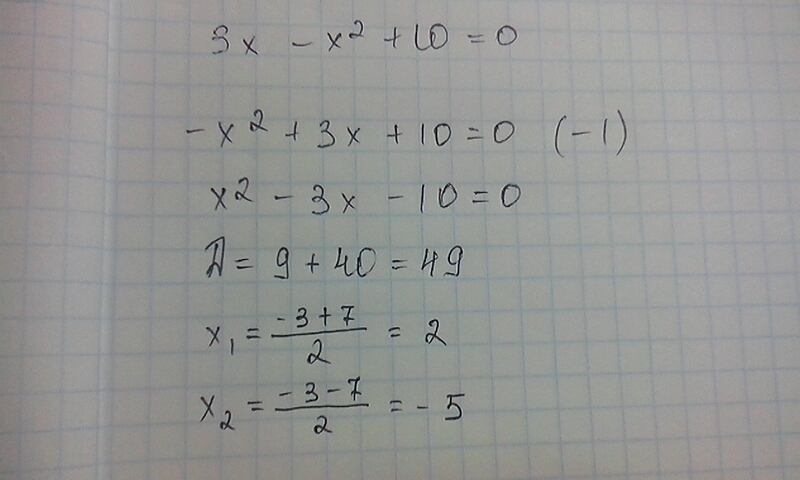 3x - x² + 10 = 0
-x² + 3x + 10 = 0 (-1)
x² - 3x - 10 = 0
Д = 9 + 40 = 49
x₁ = (-3 + 7)/2 = 2
x₂ = (-3 - 7)/2 = -5